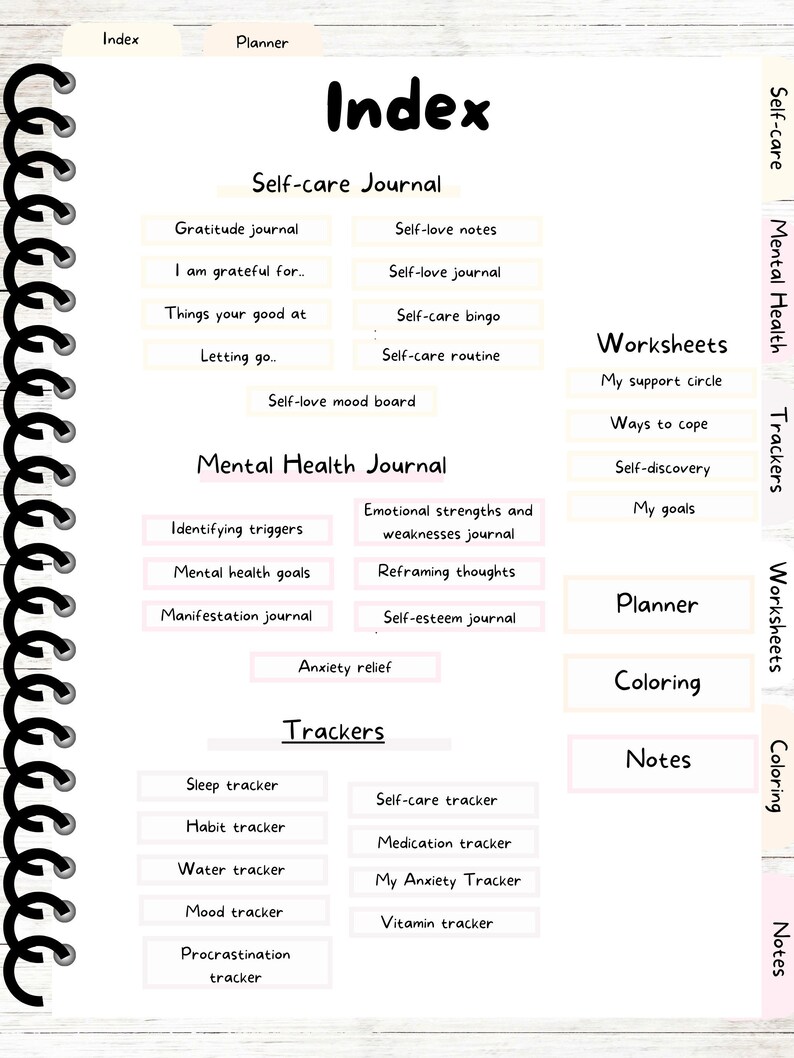 Index
Planner
Index
Self-care Journal
Gratitude journal
Self-love notes
I am grateful for..
Self-love journal
Things your good at
Self-care bingo
Letting go..
Self-care routine
Self-love mood board
Mental Health Journal
Identifying triggers
Emotional strengths and
weaknesses journal
Mental health goals
Reframing thoughts
Manifestation journal
Self-esteem journal
Anxiety relief
Trackers
Sleep tracker
Self-care tracker
Habit tracker
Medication tracker
Water tracker
My Anxiety Tracker
Mood tracker
Vitamin tracker
Procrastination
tracker
Worksheets
My support circle
Ways to cope
Self-discovery
My goals
Planner
Coloring
Notes
Self-care
Mental Health
Trackers
Worksheets
Coloring
Notes